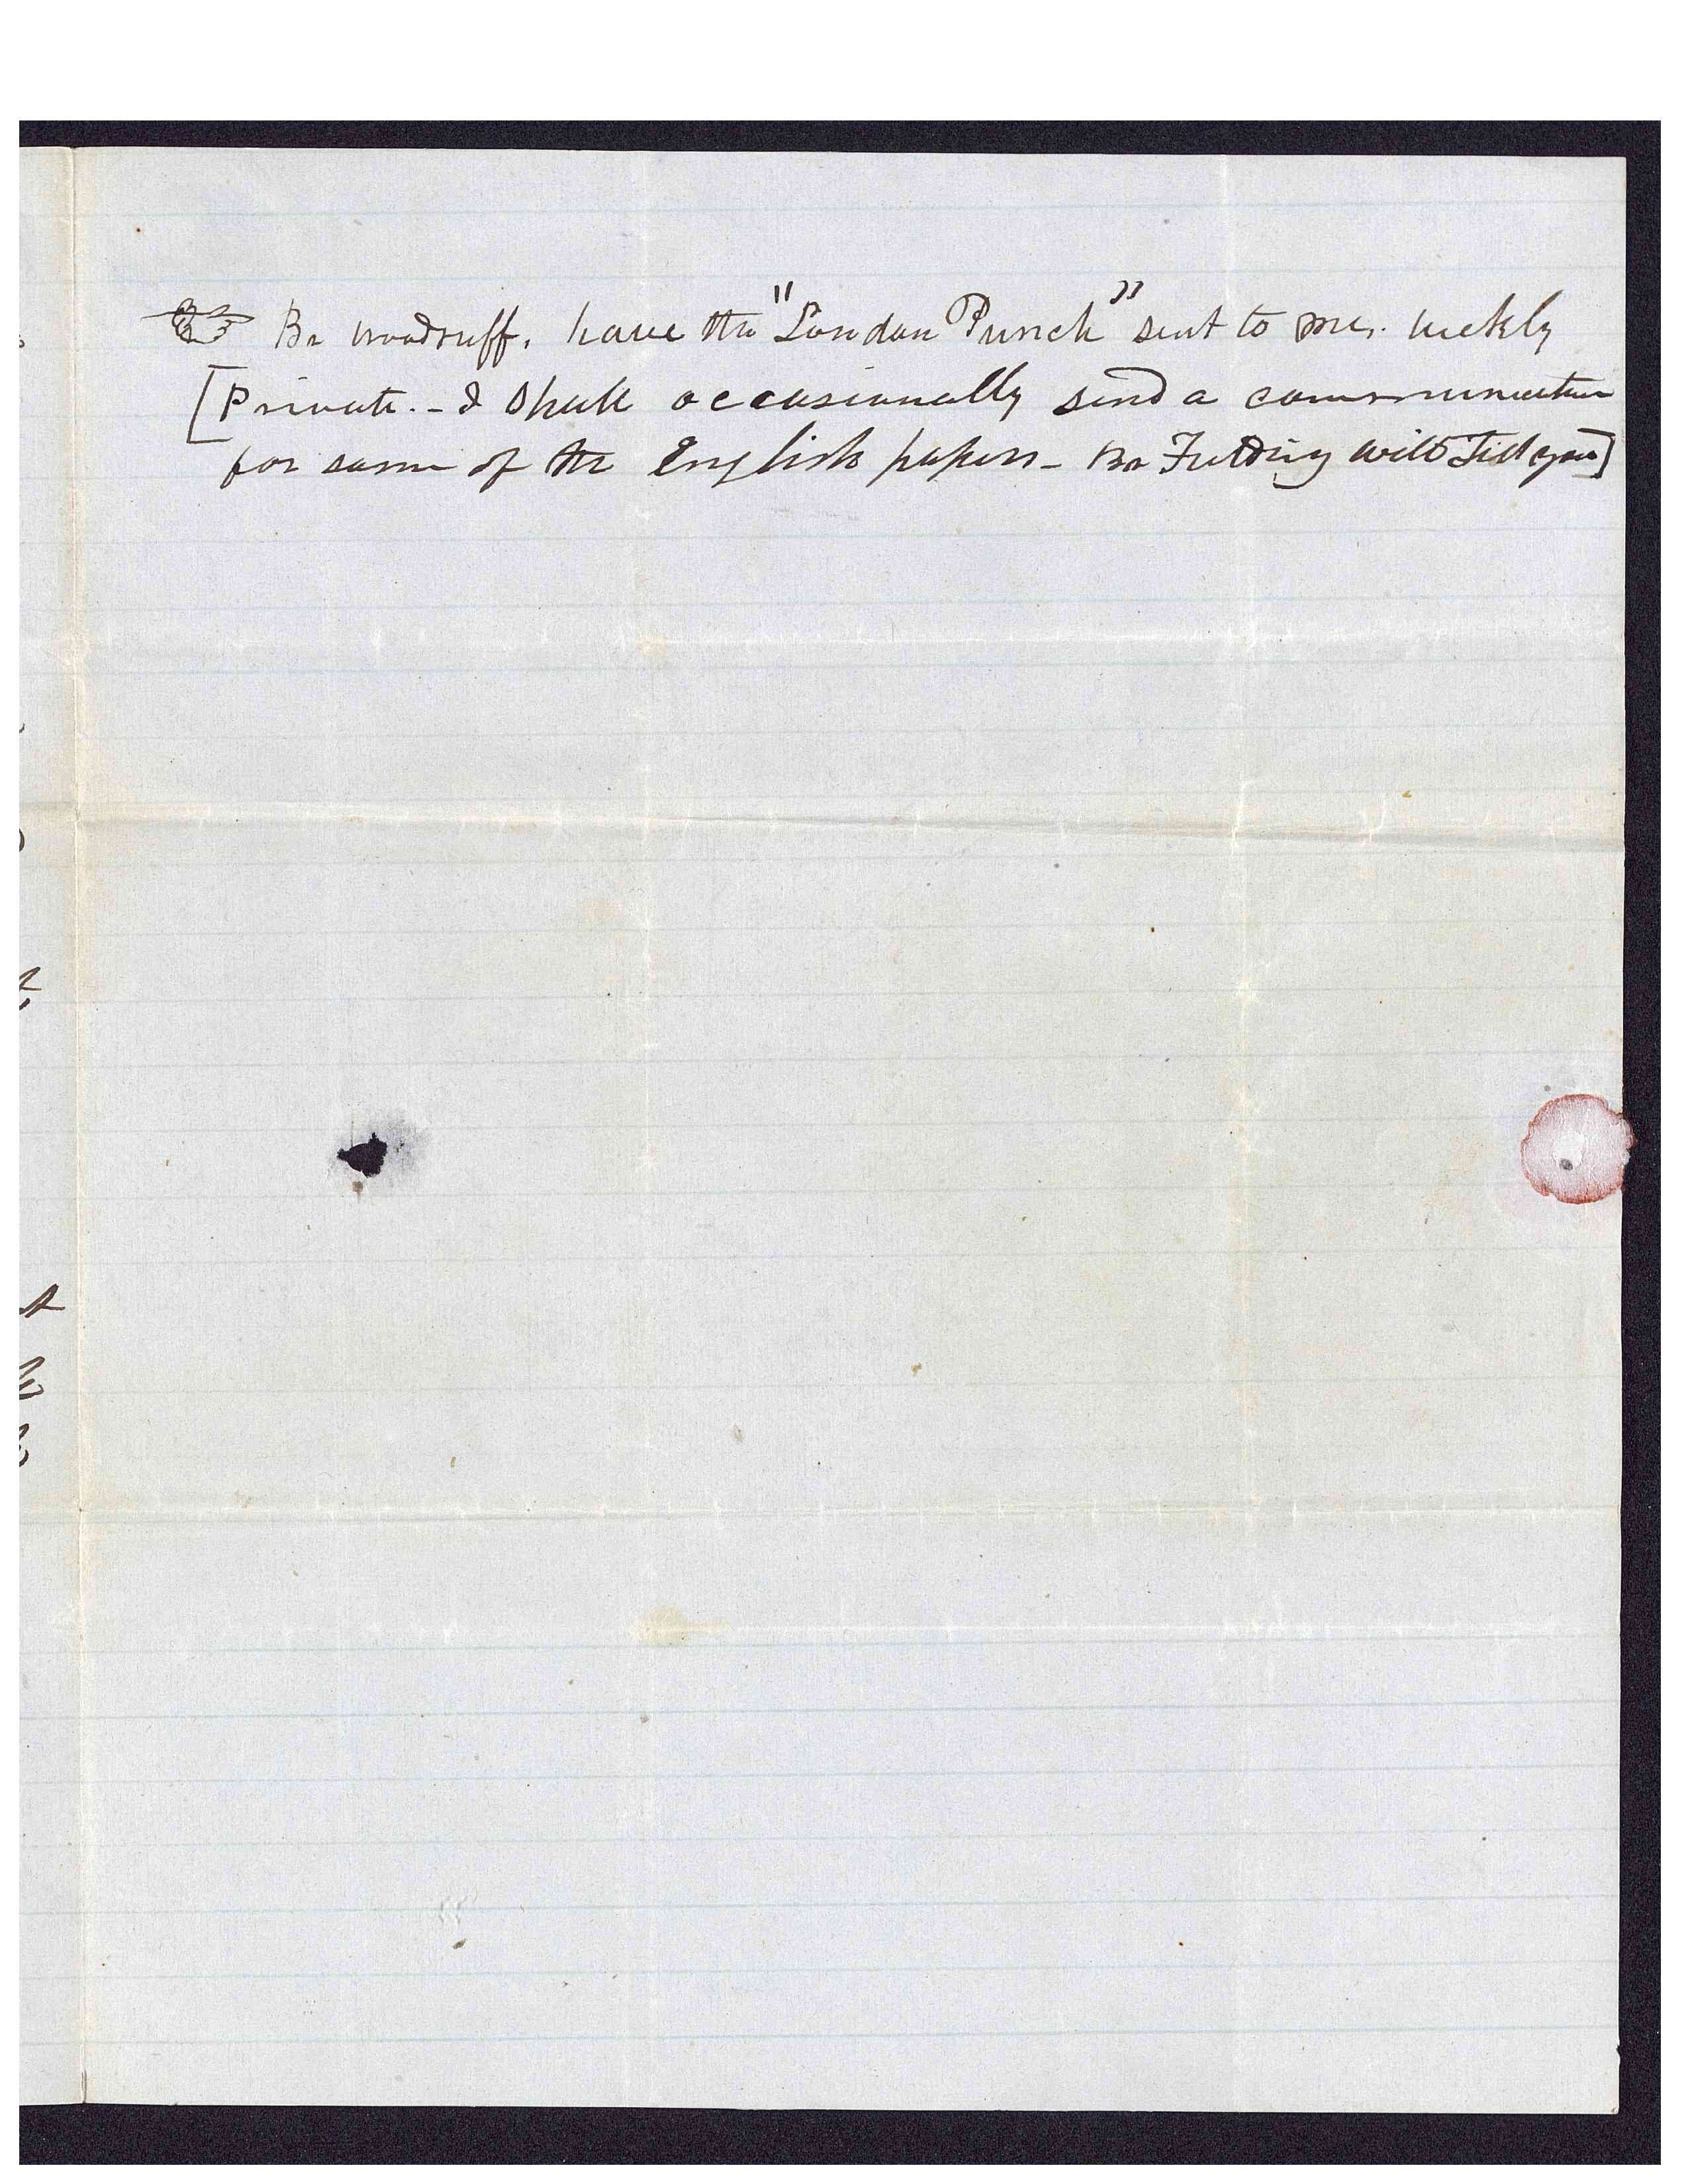 ☞ Br Woodruff, have the "London Punch" sent to me. weekly
[Private. - I shall occasionally send a communication
for some of the English papers - Br Fielding will Tell you]